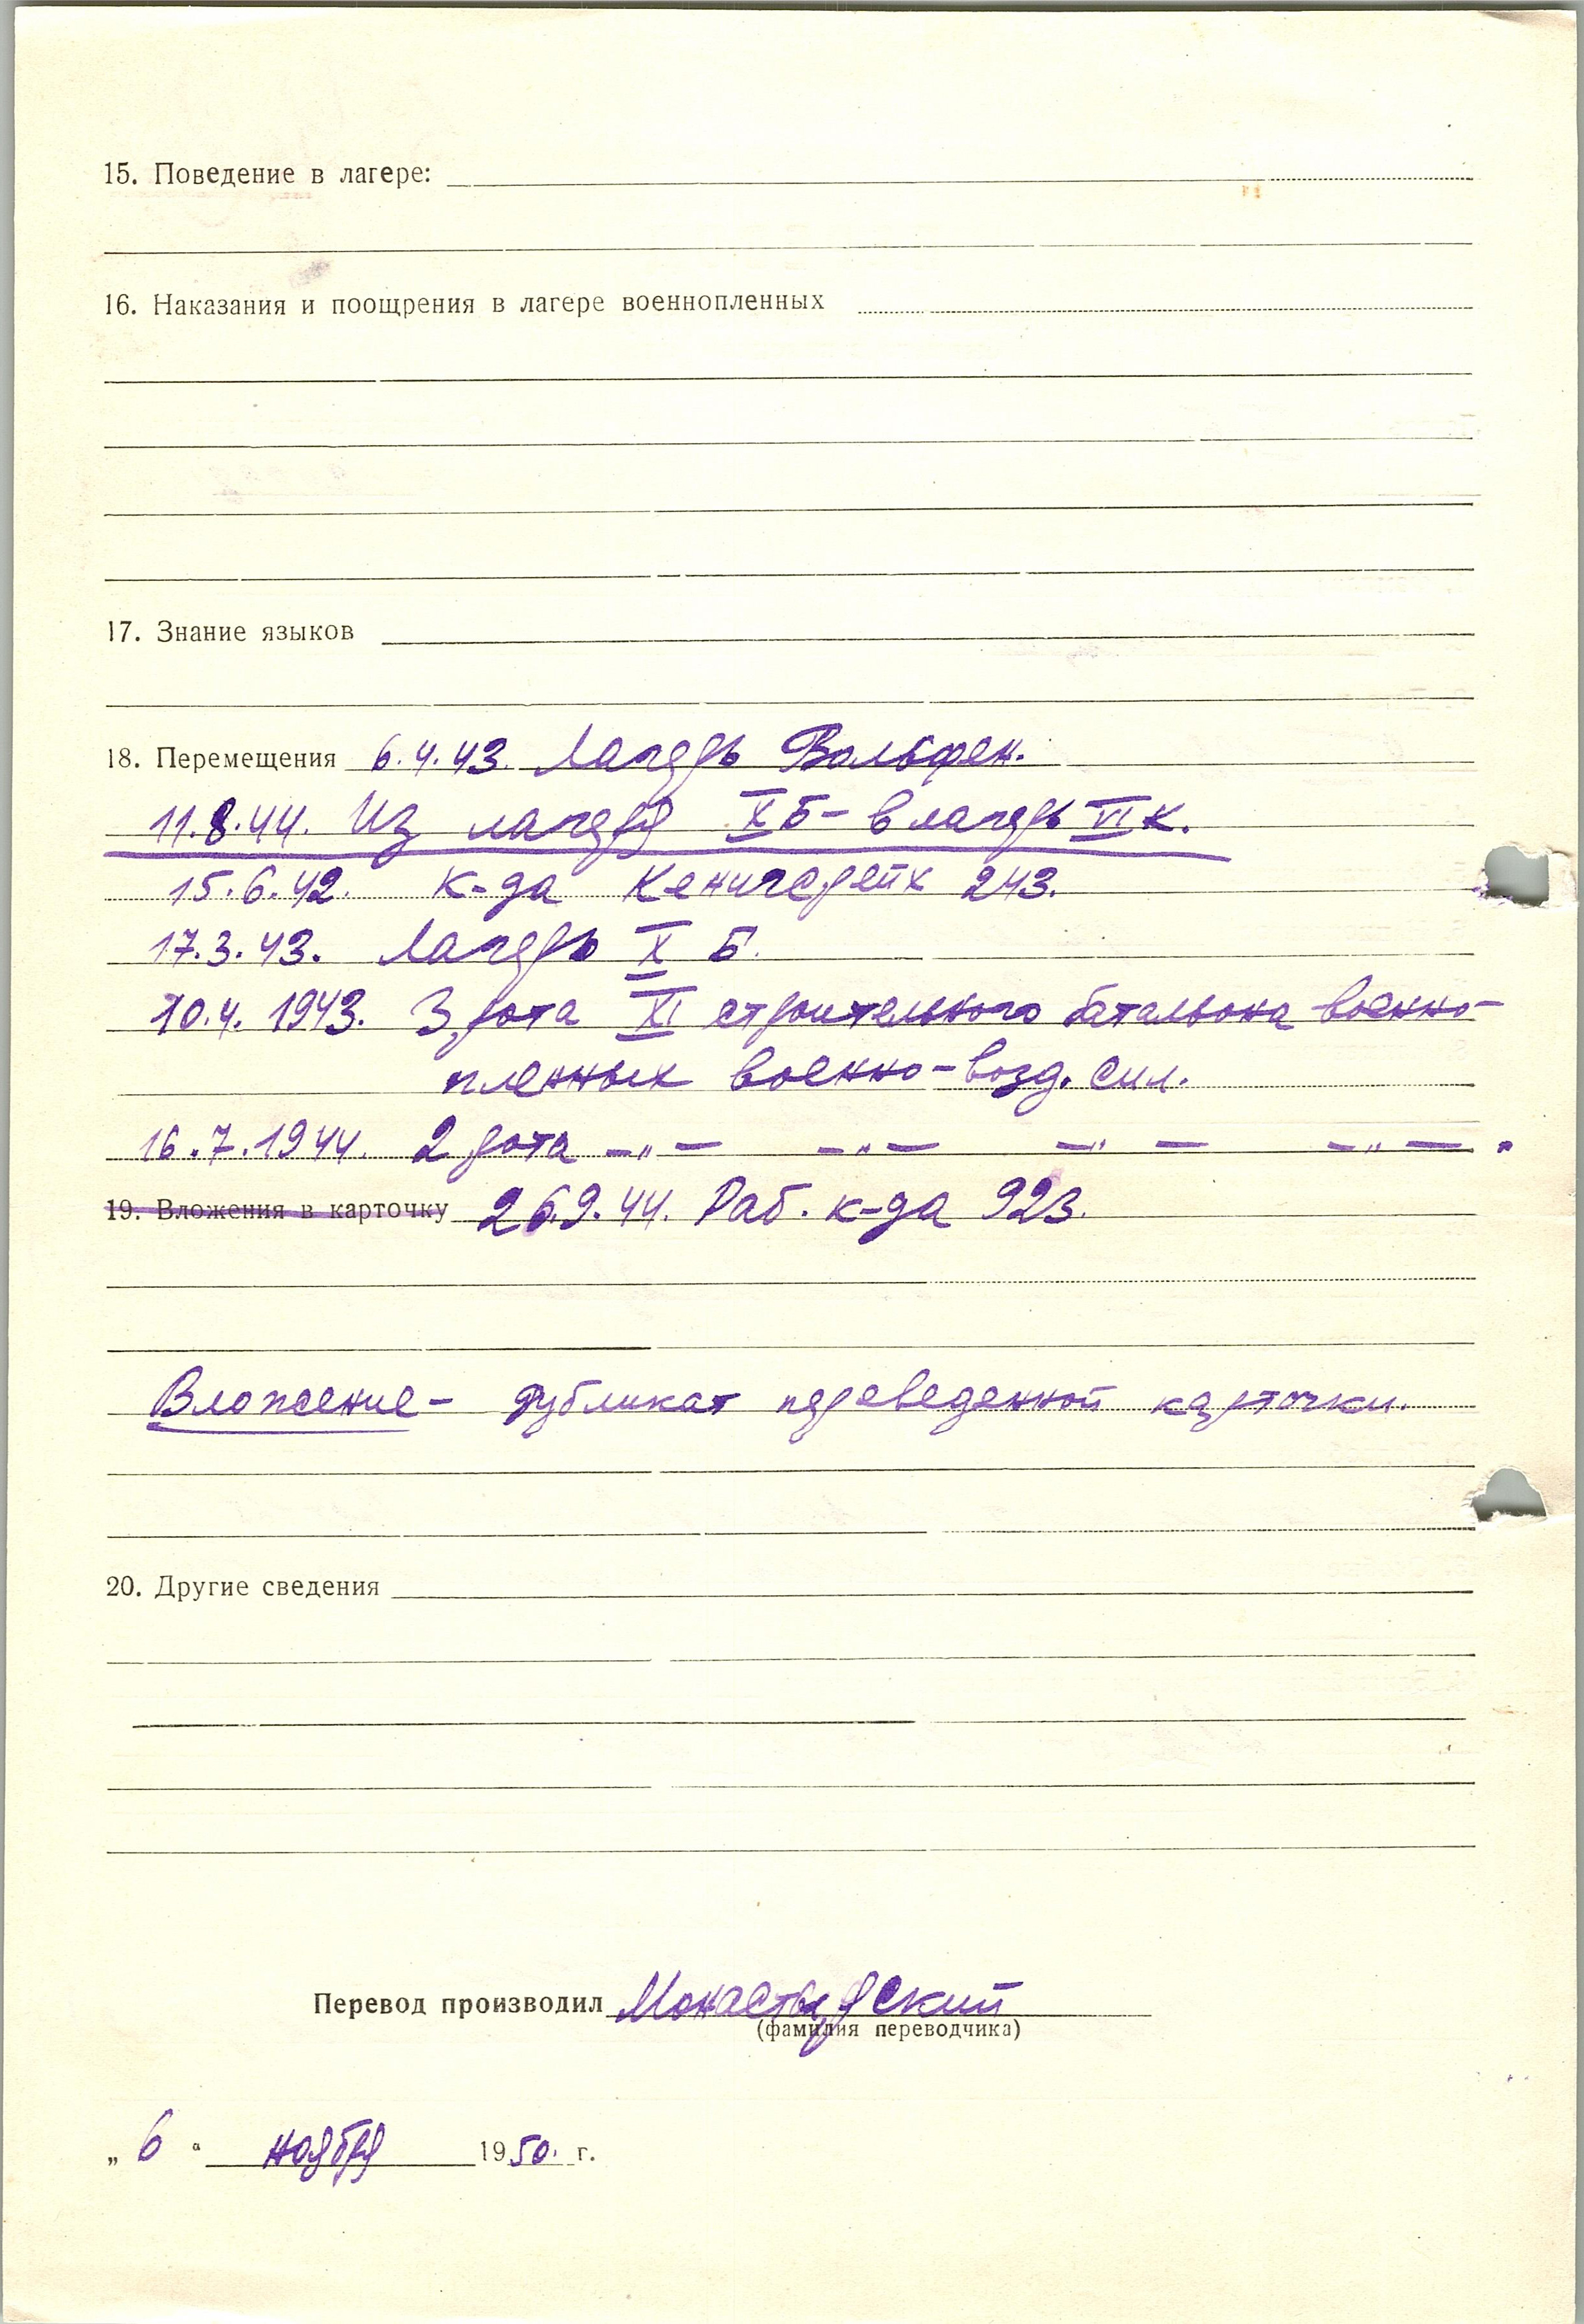 15. Поведение в лагере:
16. Наказания и поощрения в лагере военнопленных
17. Знание языков
18. Перемещения 6.4.43. Лагерь Вольфен.
11.8.44. Из лагеря X Б – в лагерь VI К.
15.6.42. К-да Кенигсрейк 243.
17.3.43. Лагерь X Б.
10.4.1943. 3 рота XI строительного батальона военно-
пленных военно-возд. сил.
16.7.1944. 2 рота –„– –„– –„– –„– .
19. Вложения в карточку 26.9.44. Раб. к-да 923.
Вложение – дубликат переведенной карточки.
20. Другие сведения
Перевод производил Монастырский
(фамилия переводчика)
„ 6 “ ноября 1950. г.